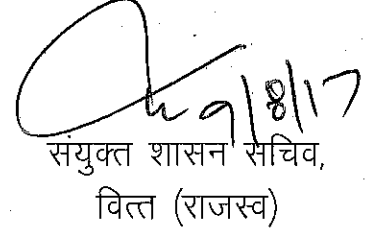 9/8/17
संयुक्त शासन सचिव,
वित्त (राजस्व)